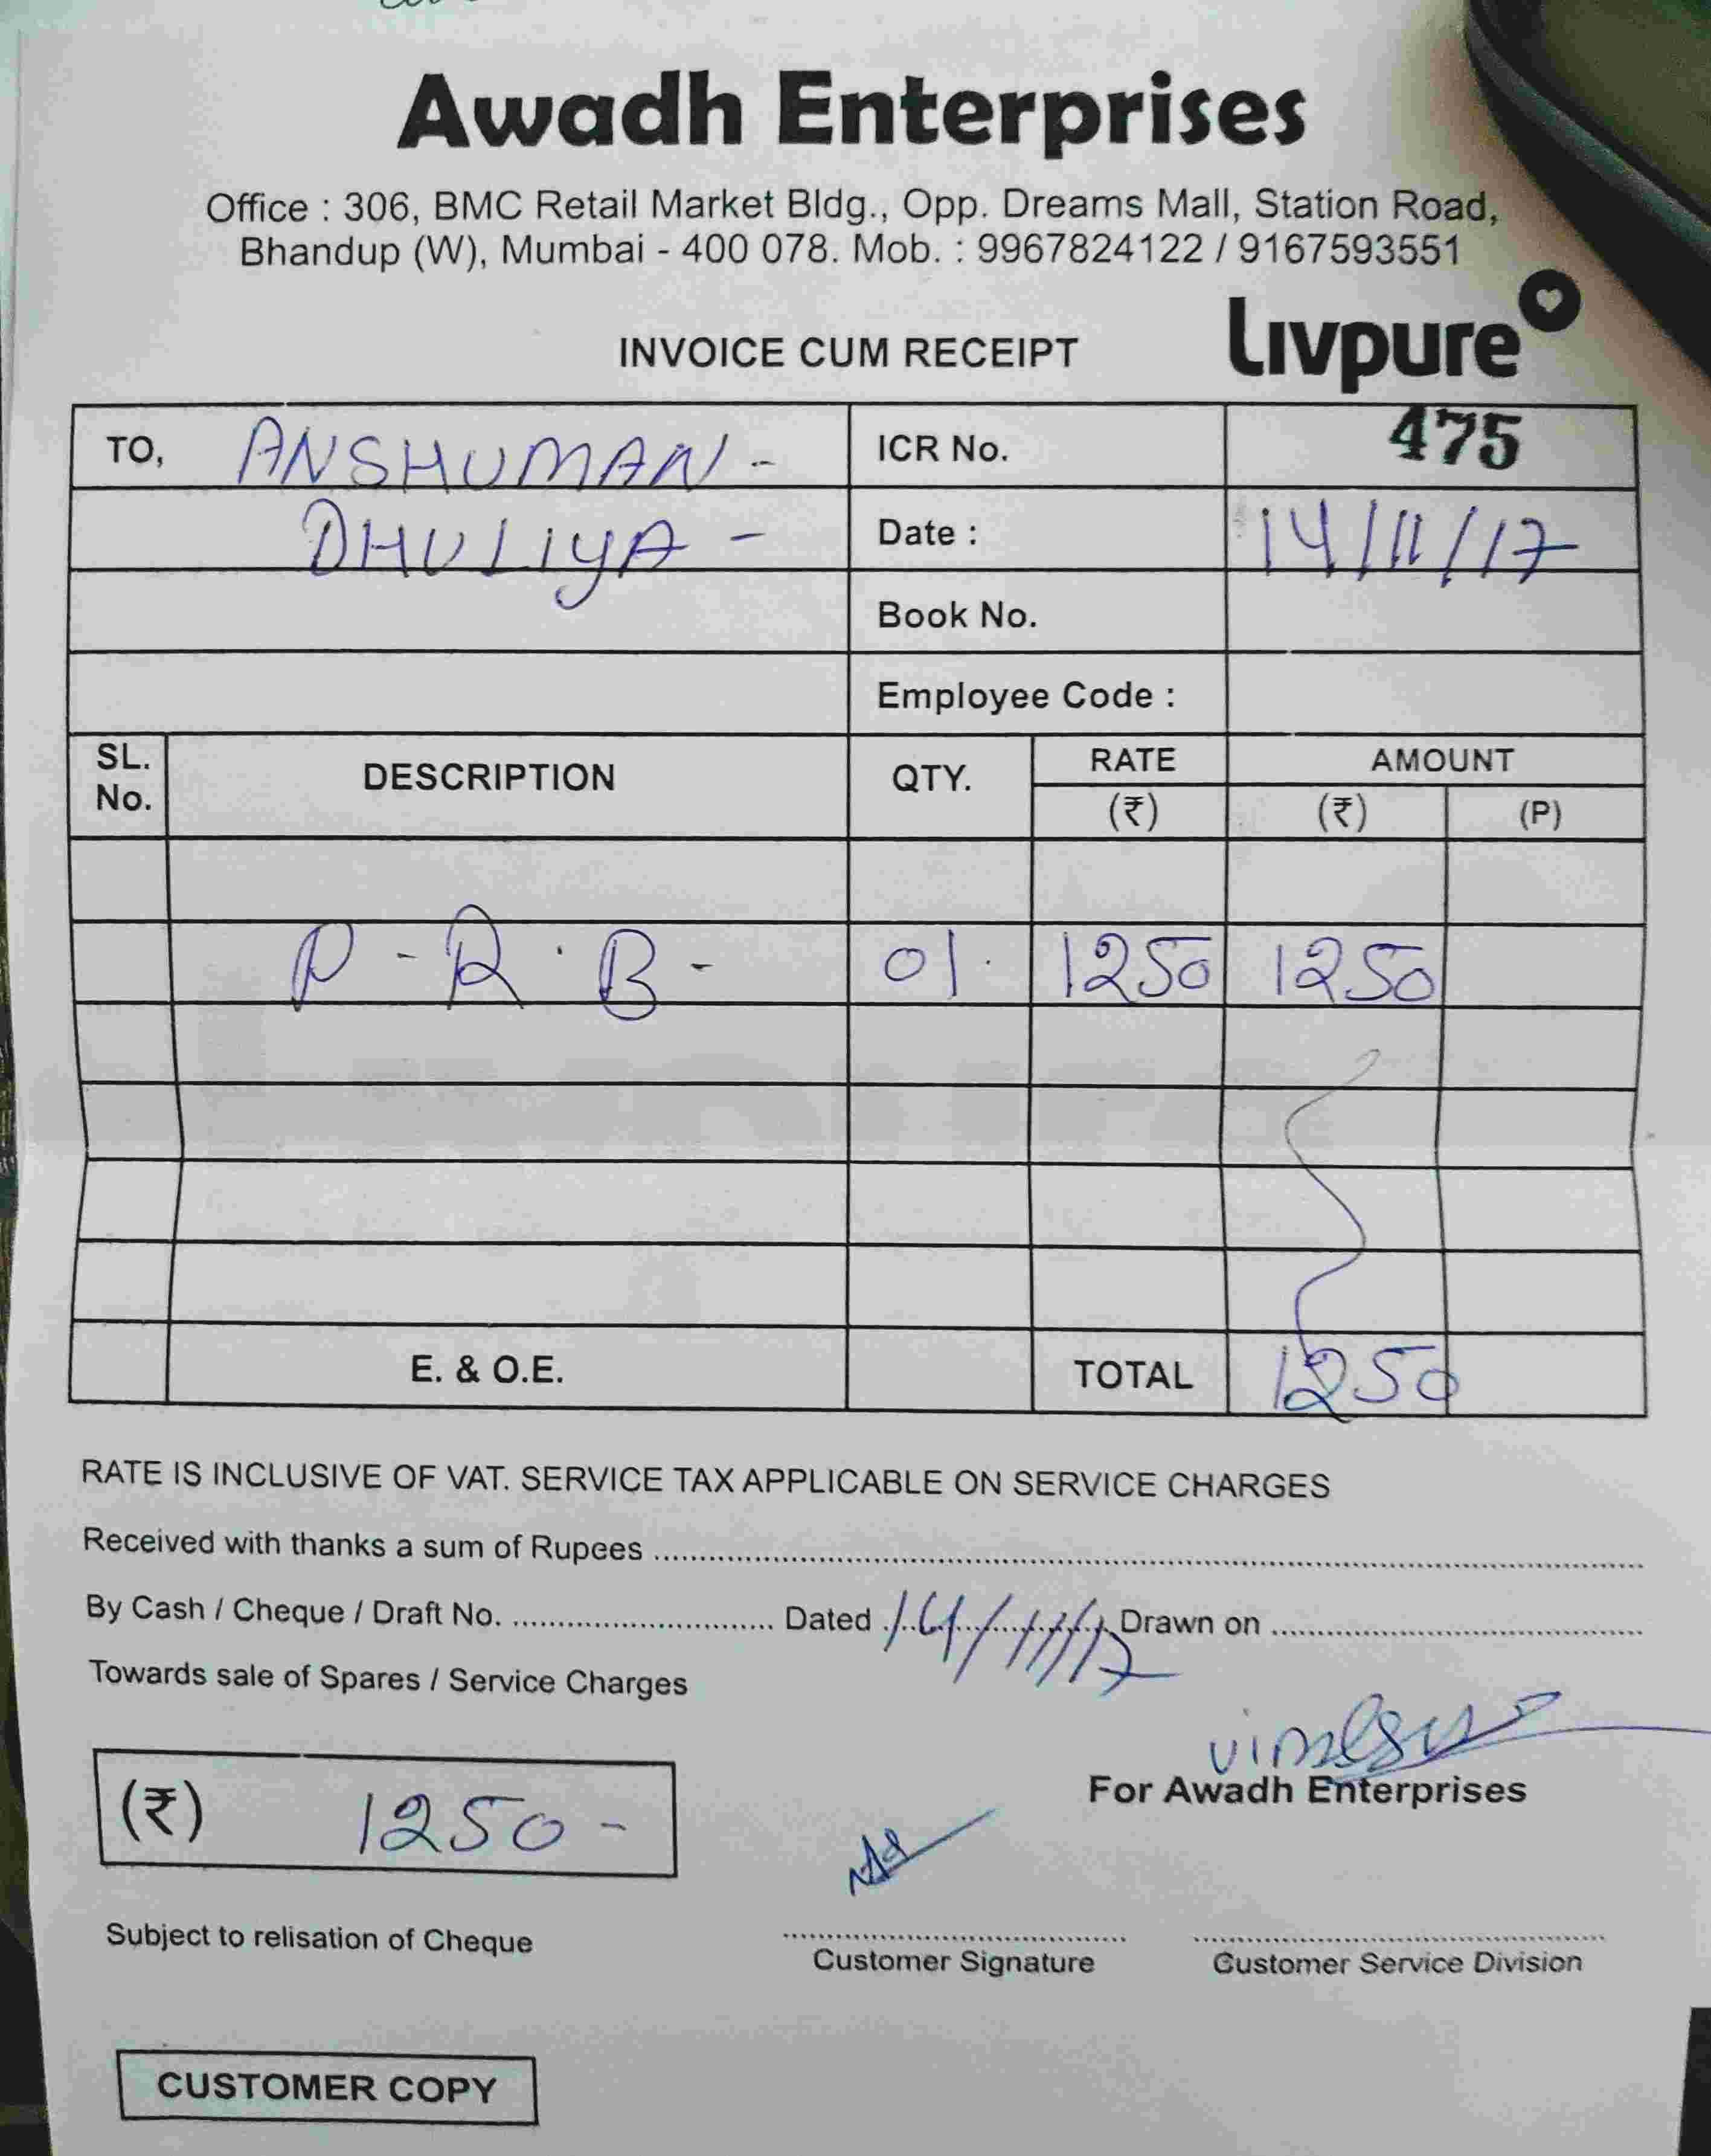 Awadh Enterprises
Office : 306, BMC Retail Market Bldg., Opp. Dreams Mall, Station Road,
Bhandup (W), Mumbai - 400 078. Mob. : 9967824122 / 9167593551
INVOICE CUM RECEIPT Livpure
TO, ANSHUMAN - ICR No. 475
DHULIYA - Date : 14/11/17
Book No.
Employee Code :
SL. No. DESCRIPTION QTY. RATE (₹) AMOUNT (₹) (P)
P - R . B - 01 . 1250 1250
E. & O.E. TOTAL 1250
RATE IS INCLUSIVE OF VAT. SERVICE TAX APPLICABLE ON SERVICE CHARGES
Received with thanks a sum of Rupees
By Cash / Cheque / Draft No. Dated 14/11/17 Drawn on
Towards sale of Spares / Service Charges
For Awadh Enterprises
(₹) 1250 -
Subject to relisation of Cheque
Customer Signature Customer Service Division
CUSTOMER COPY